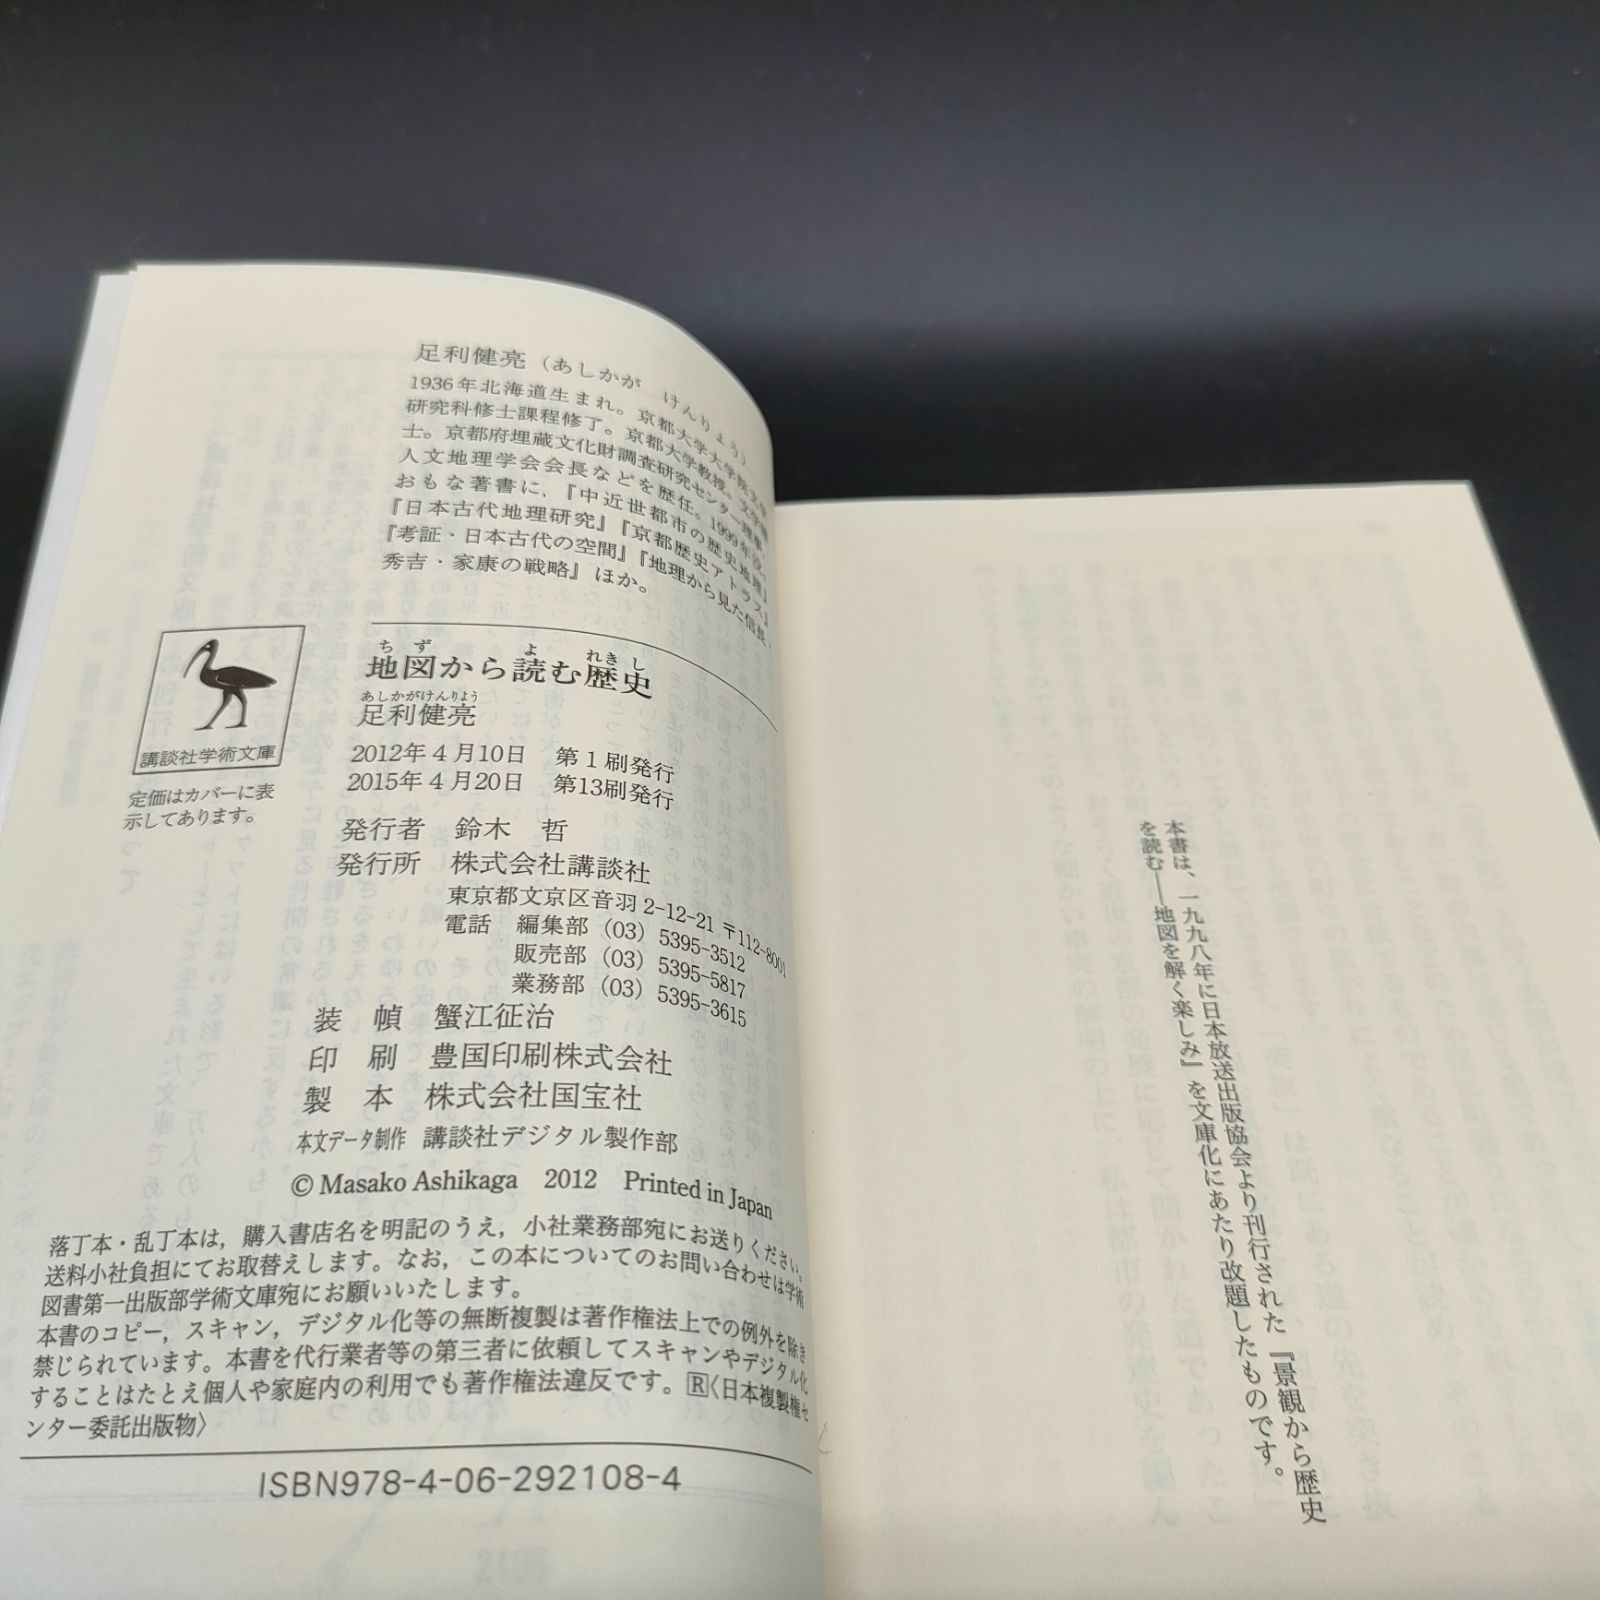 足利健亮（あしかが けんりょう）
1936年北海道生まれ。京都大学大学院文学
研究科修士課程修了。京都大学教授。文学博
士。京都府埋蔵文化財調査研究センター理事、
人文地理学会会長などを歴任。1999年没。
おもな著書に、『中近世都市の歴史地理』
『日本古代地理研究』『京都歴史アトラス』
『考証・日本古代の空間』『地理から見た信長・
秀吉・家康の戦略』ほか。
講談社学術文庫
定価はカバーに表
示してあります。
ちず よ れきし
地図から読む歴史
あしかがけんりょう
足利健亮
2012年4月10日 第1刷発行
2015年4月20日 第13刷発行
発行者 鈴木 哲
発行所 株式会社講談社
東京都文京区音羽 2-12-21 〒112-8001
電話 編集部 (03) 5395-3512
販売部 (03) 5395-5817
業務部 (03) 5395-3615
装 幀 蟹江征治
印 刷 豊国印刷株式会社
製 本 株式会社国宝社
本文データ制作 講談社デジタル製作部
© Masako Ashikaga 2012 Printed in Japan
落丁本・乱丁本は，購入書店名を明記のうえ，小社業務部宛にお送りください。
送料小社負担にてお取替えします。なお，この本についてのお問い合わせは学術
図書第一出版部学術文庫宛にお願いいたします。
本書のコピー，スキャン，デジタル化等の無断複製は著作権法上での例外を除き
禁じられています。本書を代行業者等の第三者に依頼してスキャンやデジタル化
することはたとえ個人や家庭内の利用でも著作権法違反です。Ⓡ〈日本複製権セ
ンター委託出版物〉
ISBN978-4-06-292108-4
本書は、一九九八年に日本放送出版協会より刊行された『景観から歴史
を読む――地図を解く楽しみ』を文庫化にあたり改題したものです。